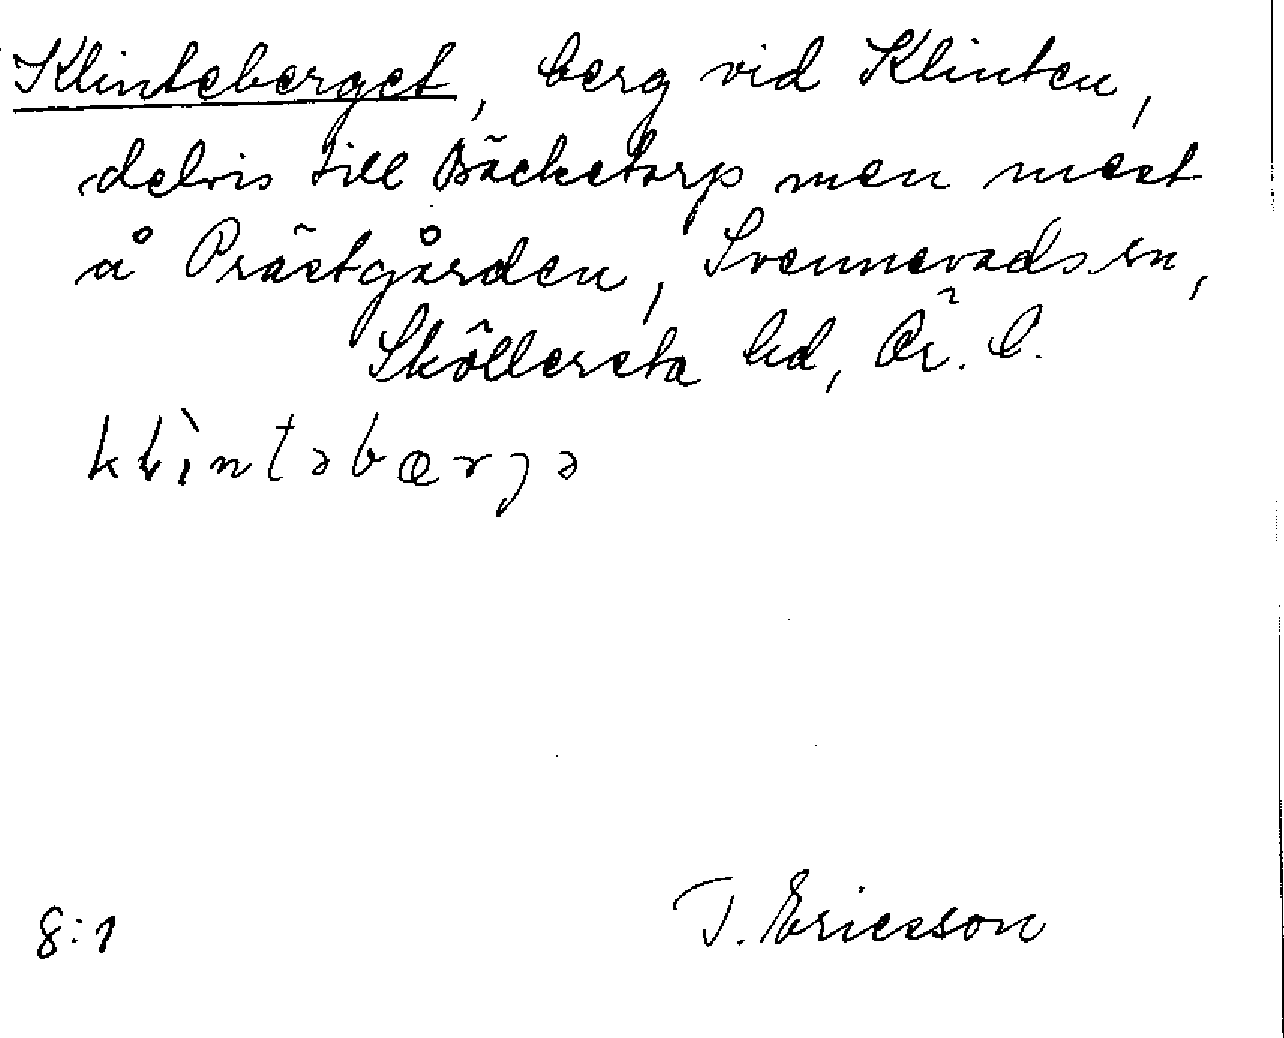 Klinteberget, berg vid Klinten,
delvis till Bäcketorp men mest
å Prästgården, Svennevads sn,
Sköllersta hd, Ör. l.
klìntəbærjə
8:1
T. Ericsson